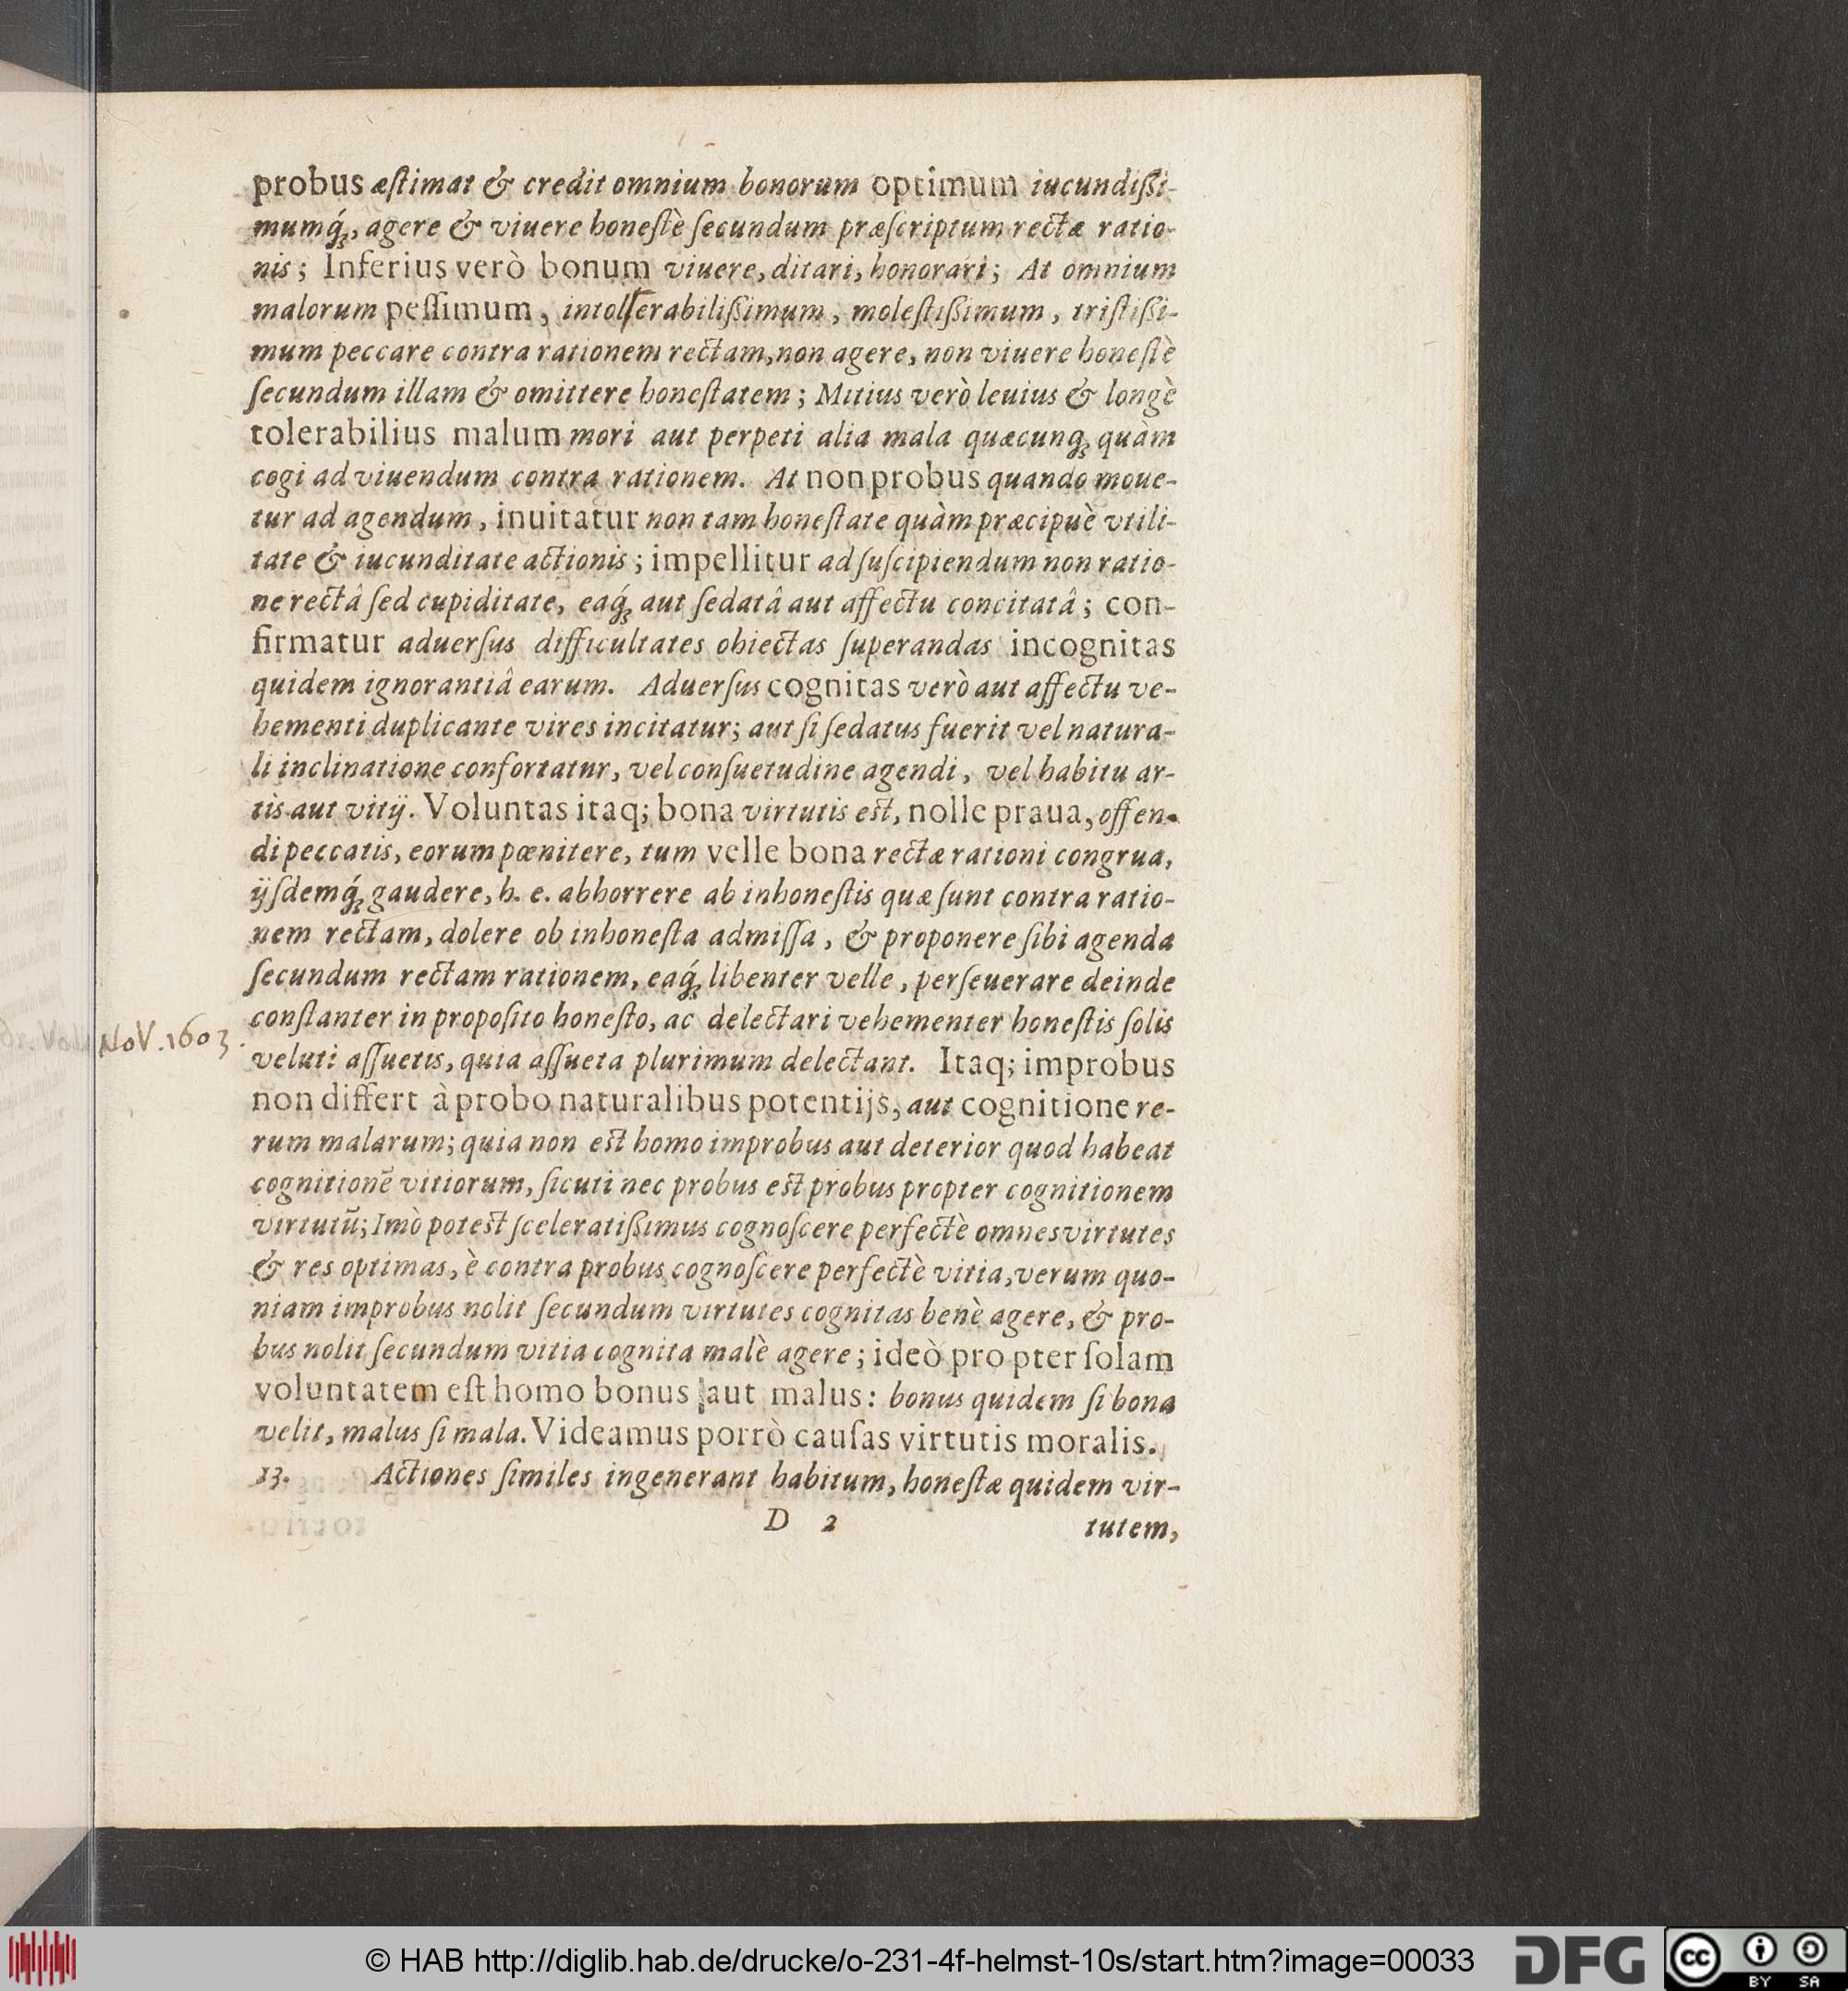 probus æſtimat & credit omnium bonorum optimum iucundiſſi-
mumq́;, agere & viuere honeſtè ſecundum præſcriptum rectæ ratio-
nis; Inferius verò bonum viuere, ditari, honorari; At omnium
malorum peſſimum, intollerabiliſſimum, moleſtiſſimum, triſtiſſi-
mum peccare contra rationem rectam, non agere, non viuere honeſtè
ſecundum illam & omittere honeſtatem; Mitius verò leuius & longè
tolerabilius malum mori aut perpeti alia mala quæcunq; quàm
cogi ad viuendum contra rationem. At non probus quando moue-
tur ad agendum, inuitatur non tam honeſtate quàm præcipuè vtili-
tate & iucunditate actionis; impellitur ad ſuſcipiendum non ratio-
ne rectâ ſed cupiditate, eaq́; aut ſedatâ aut affectu concitatâ; con-
firmatur aduerſus difficultates obiectas ſuperandas incognitas
quidem ignorantiâ earum. Aduerſus cognitas verò aut affectu ve-
hementi duplicante vires incitatur; aut ſi ſedatus fuerit vel natura-
li inclinatione confortatur, vel conſuetudine agendi, vel habitu ar-
tis aut vitij. Voluntas itaq; bona virtutis eſt, nolle praua, offen-
di peccatis, eorum pœnitere, tum velle bona rectæ rationi congrua,
ijſdemq́; gaudere, h. e. abhorrere ab inhoneſtis quæ ſunt contra ratio-
nem rectam, dolere ob inhoneſta admiſſa, & proponere ſibi agenda
ſecundum rectam rationem, eaq́; libenter velle, perſeuerare deinde
conſtanter in propoſito honeſto, ac delectari vehementer honeſtis ſolis
Nov. 1603.
veluti aſſuetis, quia aſſueta plurimum delectant. Itaq; improbus
non differt à probo naturalibus potentijs, aut cognitione re-
rum malarum; quia non eſt homo improbus aut deterior quod habeat
cognitionē vitiorum, ſicuti nec probus eſt probus propter cognitionem
virtutū; Imò poteſt ſceleratiſſimus cognoſcere perfectè omnes virtutes
& res optimas, è contra probus cognoſcere perfectè vitia, verum quo-
niam improbus nolit ſecundum virtutes cognitas benè agere, & pro-
bus nolit ſecundum vitia cognita malè agere; ideò pro pter ſolam
voluntatem eſt homo bonus aut malus: bonus quidem ſi bona
velit, malus ſi mala. Videamus porrò cauſas virtutis moralis.
13. Actiones ſimiles ingenerant habitum, honeſtæ quidem vir-
D 2 tutem,
© HAB http://diglib.hab.de/drucke/o-231-4f-helmst-10s/start.htm?image=00033
DFG
cc BY SA